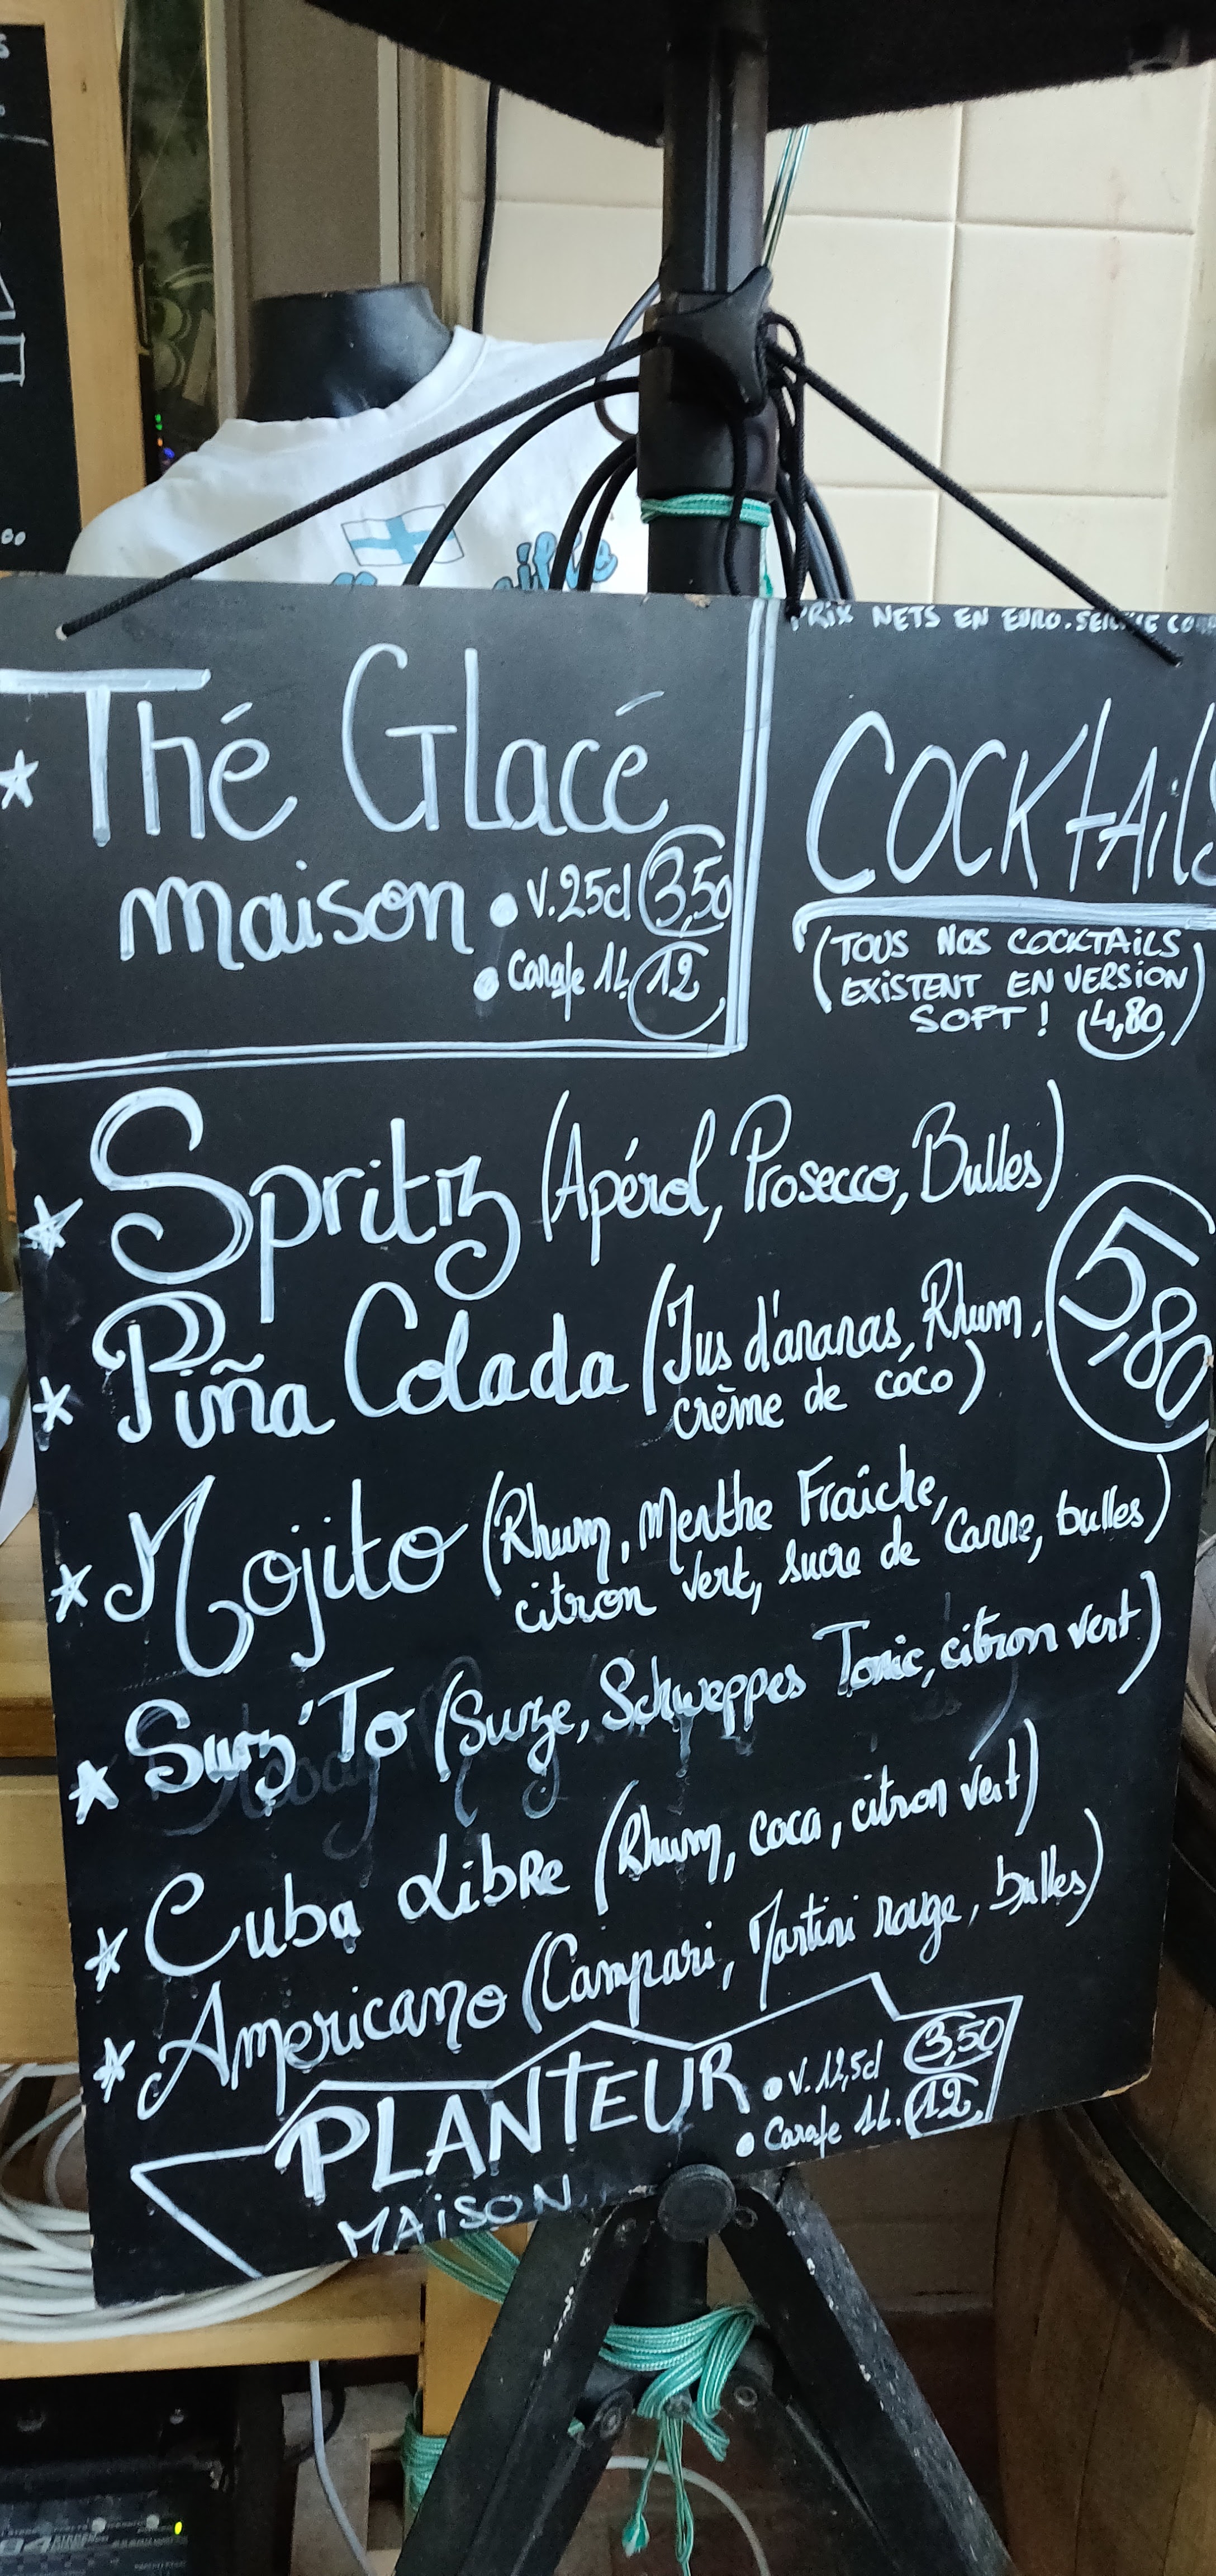 PRIX NETS EN EURO. SERVICE
Thé Glacé
maison • V.25cl 3,50
• Carafe 1L. 12
COCKTAILS
(TOUS NOS COCKTAILS
EXISTENT EN VERSION
SOFT ! 4,80)
Spritz (Apérol, Prosecco, Bulles)
5,80
Piña Colada (Jus d'ananas, Rhum,
crème de coco)
Mojito (Rhum, Menthe Fraîche,
citron vert, sucre de Canne, bulles)
Suz'To (Suze, Schweppes Tonic, citron vert)
Cuba Libre (Rhum, coca, citron vert)
Americano (Campari, Martini rouge, bulles)
PLANTEUR • V. 12,5cl 3,50
• Carafe 1L. 12
MAISON